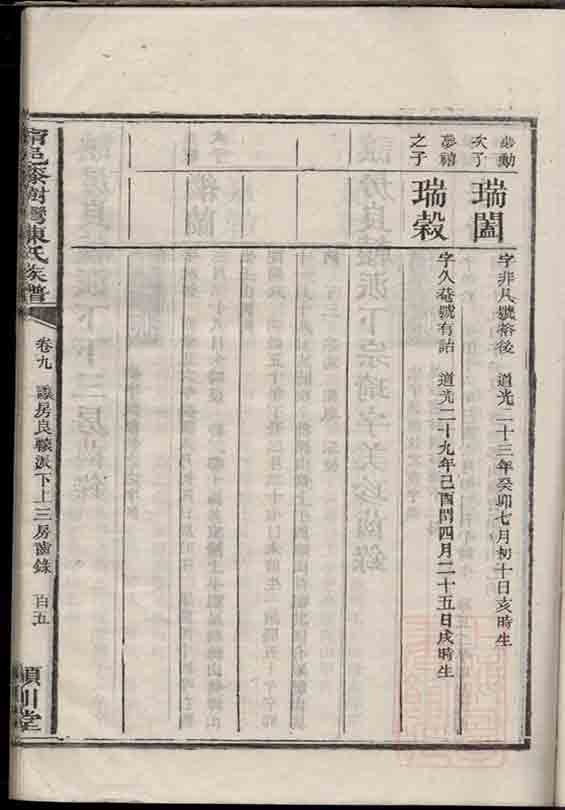 夢勳
次子
瑞闔
字非凡號裕後 道光二十三年癸卯七月初十日亥時生
夢禧
之子
瑞穀
字久菴號有詒 道光二十九年己酉閏四月二十五日戌時生
邑漆樹灣陳氏族譜
卷九 議房良轅派下上三房齒錄 百五
潁川堂